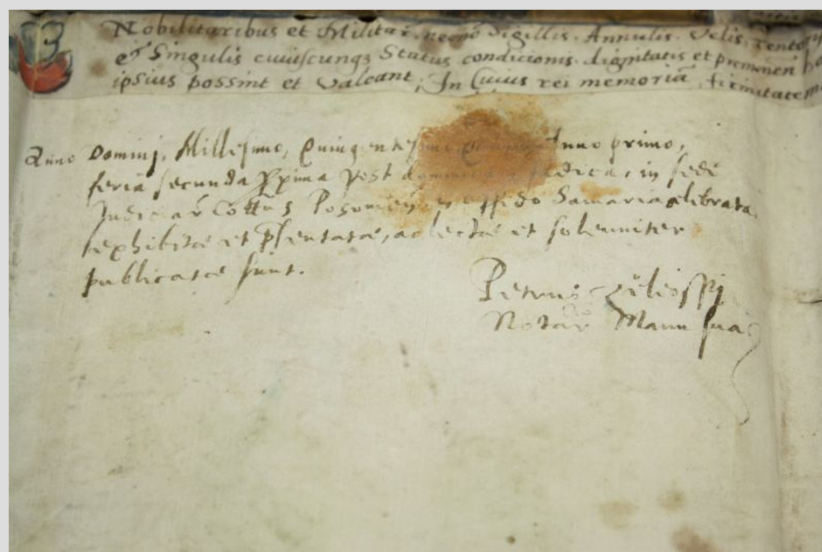 Nobilitaribus et Militar. necnō Sigillis. Annulis. Velis. Tentor
et Singulis cuiuscunqȝ Status condicionis. dignitatis et premmen
ipsius possint et Valeant; In Cuius rei memoriā, firmitatem
Anno Domini, Millesimo, Quingentesimo primo,
feria secunda p̱xima post in sede
Judiciar Cottus Poson oppido Samaria celibrata
exhibitæ et p̄sentatæ, ac lectæ et solenniter
publicatæ sunt.
Petrus
Notar Manu sua